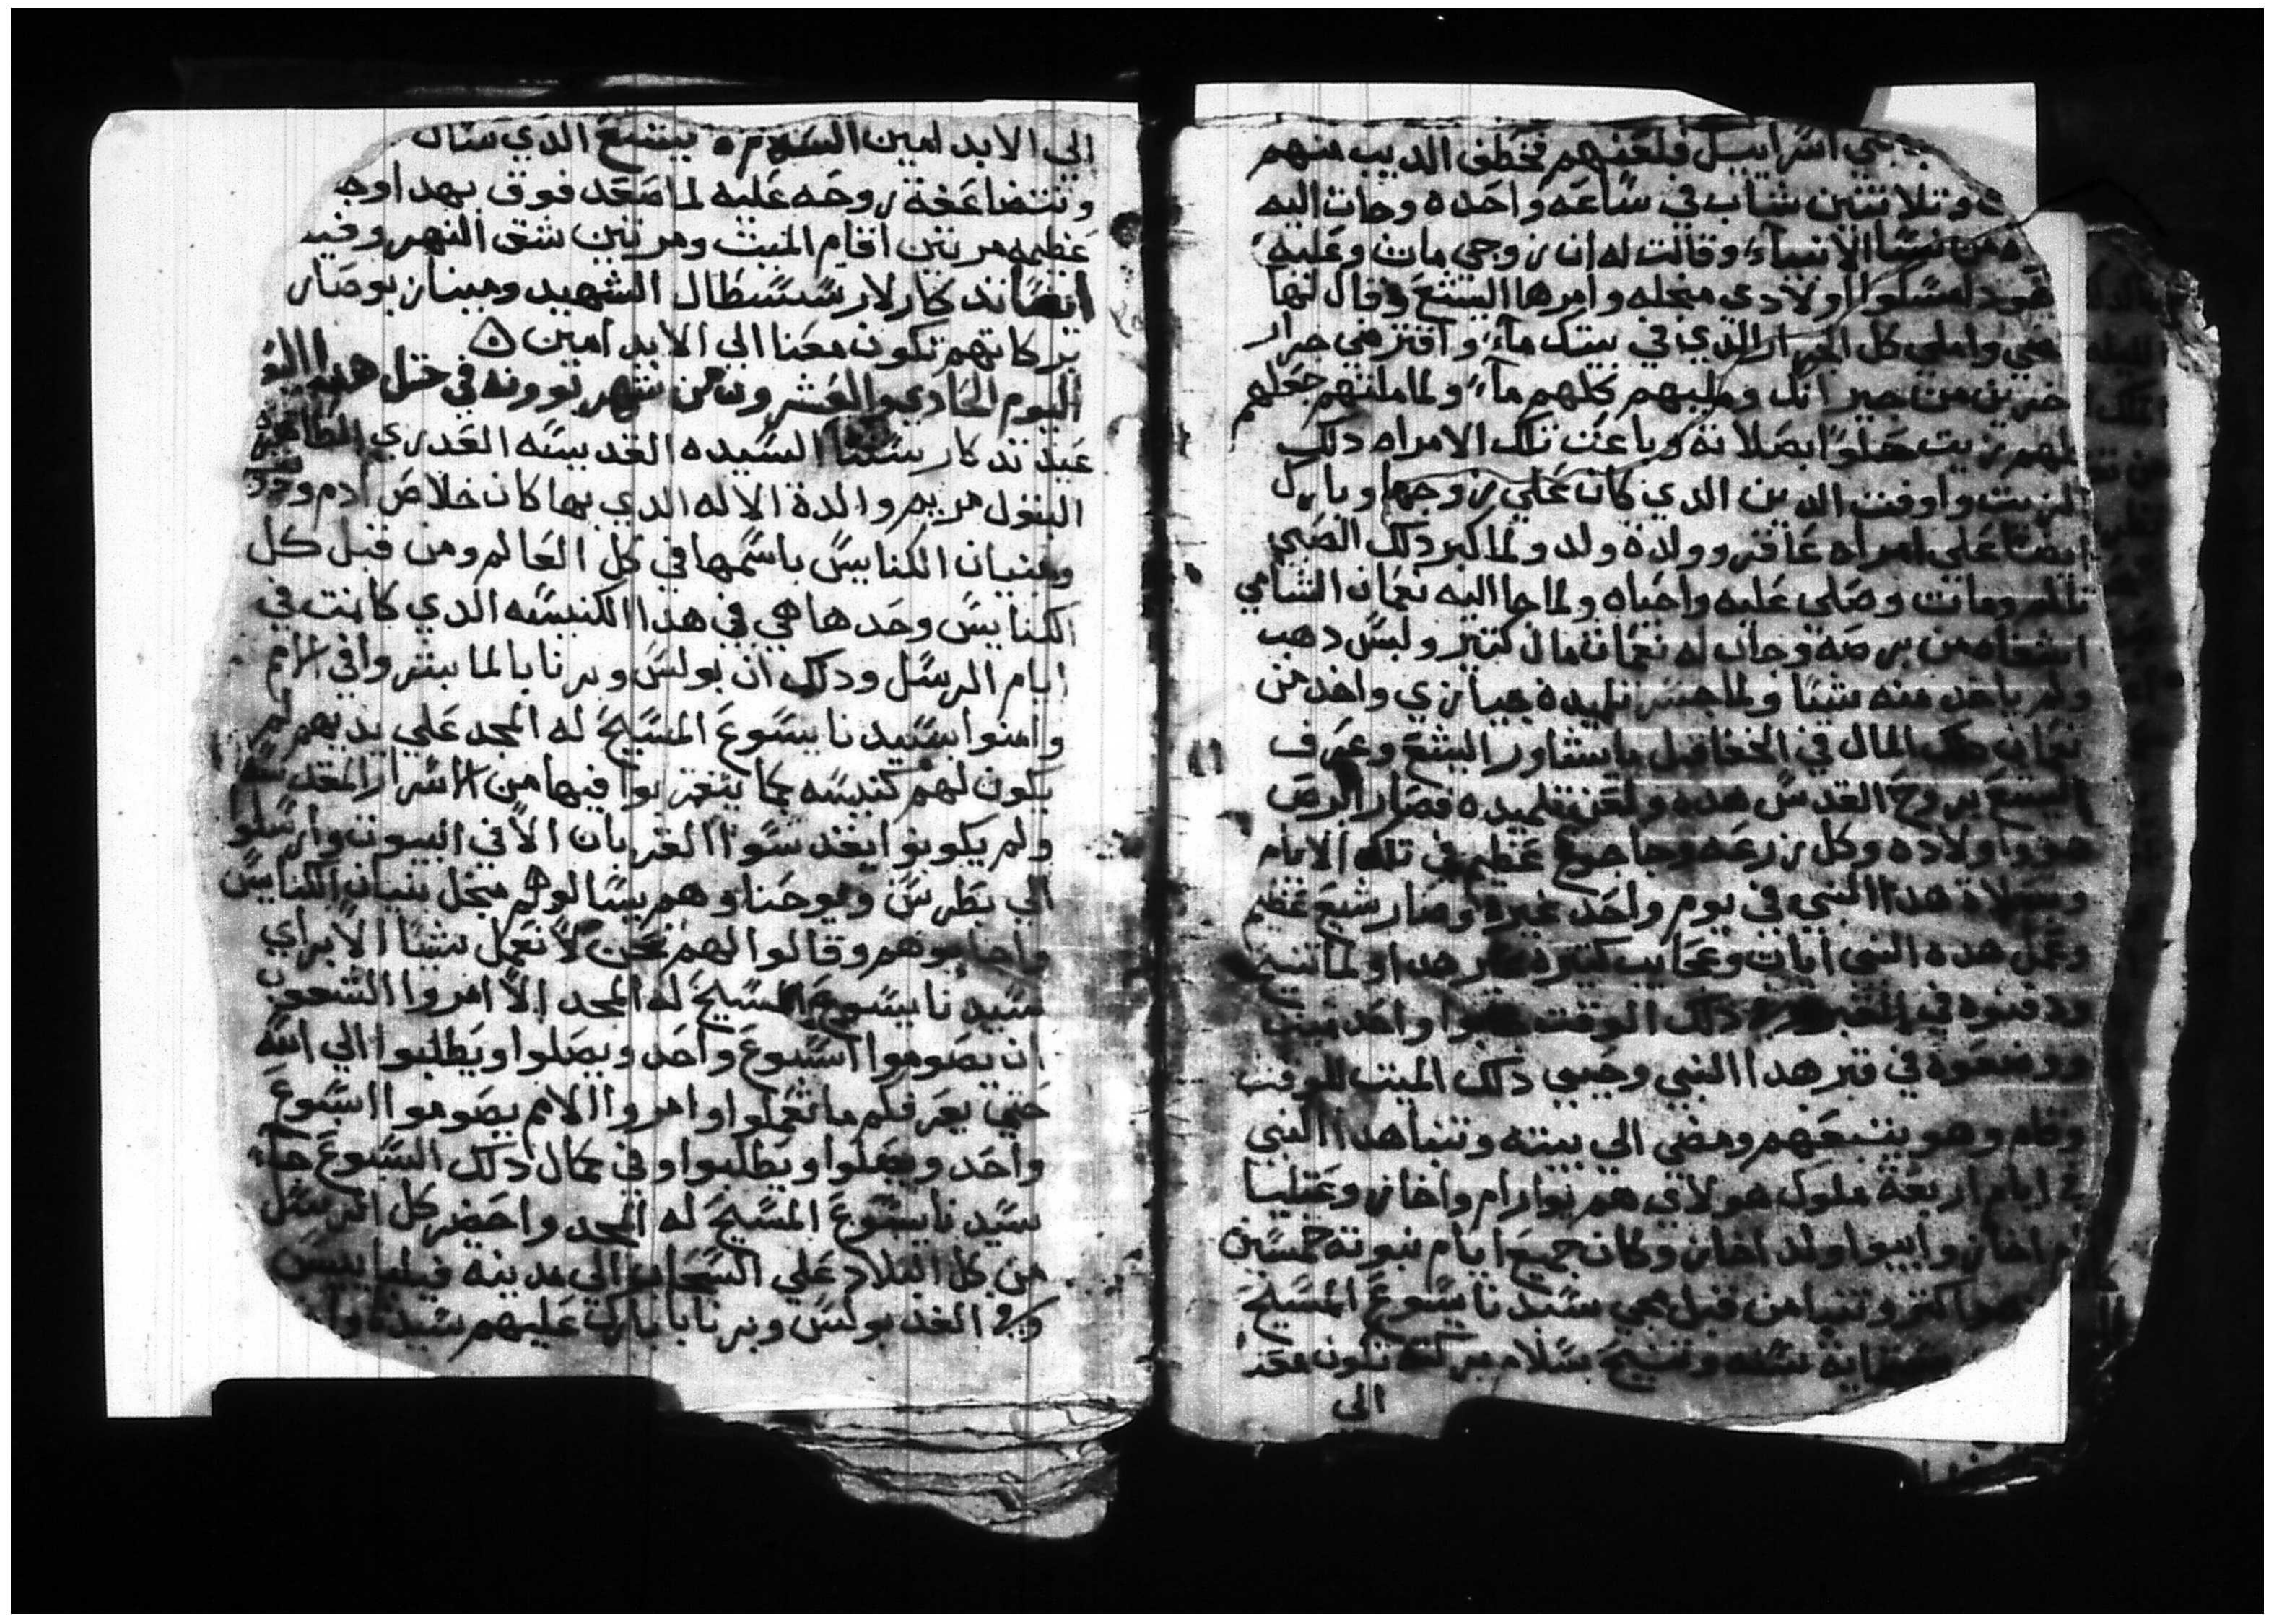 بني اسراييل فلعنهم فخطف الديب منهم
وتلاتين شاب في ساعه واحده وجات اليه
من نسا الانبياء وقالت له ان زوجي مات وعليه
اولادي منجله وامرها اليشع وقال لها
واملي كل الجرار الذي في بيتك ماء واقترضي جرار
اخرين من جيرانك ومليهم كلهم ماء ولما ملتهم جعلهم
لهم زيت حلوا بصلاته وباعت تلك الامراه دلك
الزيت واوفت الدين الدي كان علي زوجها وبارك
ايضا علي امراه عاقر وولدة ولد ولما كبر دلك الصبي
تالم ومات وصلي عليه واحياه ولما جا اليه نعمان الشامي
اشفاه من برصه وجاب له نعمان مال كتير ولبس دهب
ولم ياخد منه شيا ولما جسر تلميده جيازي واخد من
نعمان دلك المال في الخفا قبل ما يشاور اليشع وعرف
اليشع بروح القدس هده ولعن تلميده فصار ابرص
هو واولاده وكل زرعه وجا جوع عظيم في تلك الايام
وبصلاة هدا النبي في يوم واحد غيرة وصار شبع عظيم
وعمل هده النبي ايات وعجايب كتيرة غير هدا ولما تنيح
ودفنوه في القبر دلك الوقت واحد ميت
ووضعوه في قبر هدا النبي وحيي دلك الميت للوقت
وقام وهو يتبعهم ومضي الي بيته وتنبا هدا النبي
في ايام اربعة ملوك هولاي هم يوارام واخاز وعتليا
ام اخاز وابيوا ولد اخاز وكان جميع ايام نبوته خمسين
اكتر وتنبا من قبل مجي سيدنا يسوع المسيح
ماية سنه وتنيح بسلام بركته تكون معنا
الي
الي الابد امين السلام ليشع الدي سال
وتتضاعفة روحه عليه لما صعد فوق بهدا وجه
عظيمه مرتين اقام الميت ومرتين شق النهر وفيه
ايضا تدكار لارسسطال الشهيد ومينا بوصار
بركاتهم تكون معنا الي الابد امين
اليوم الحادي والعشرون من شهر بوونه في متل هدا اليوم
عيد تدكار ستنا السيده القديسه العدري الطاهرة
البتول مريم والدة الاله الدي بها كان خلاص ادم
وبنيان الكنايس باسمها في كل العالم ومن قبل كل
الكنايس وحدها هي في هدا الكنيسه الدي كانت في
ايام الرسل ودلك ان بولس وبرنابا لما بشروا في الامم
وامنوا بسيدنا يسوع المسيح له المجد علي يديهم لم
يكون لهم كنيسه بما يتقربوا فيها من الاسرار المقدسه
ولم يكونوا يقدسوا القربان الا في البيوت وارسلوا
الي بطرس ويوحنا وهم يسالوهم منجل بنيان الكنايس
واجابوهم وقالوا لهم نحن لا نعمل شيا الا براي
سيدنا يسوع المسيح له المجد الا امروا الشعوب
ان يصوموا اسبوع واحد ويصلوا ويطلبوا الي الله
حتي يعرفكم ما تعملوا وامروا الامم يصوموا اسبوع
واحد ويصلوا ويطلبوا وفي كمال دلك السبوع جاء
سيدنا يسوع المسيح له المجد واحضر كل الرسل
من كل البلاد علي السحاب الي مدينة فيلبايس
وفي الغد بولس وبرنابا بارك عليهم سيدنا